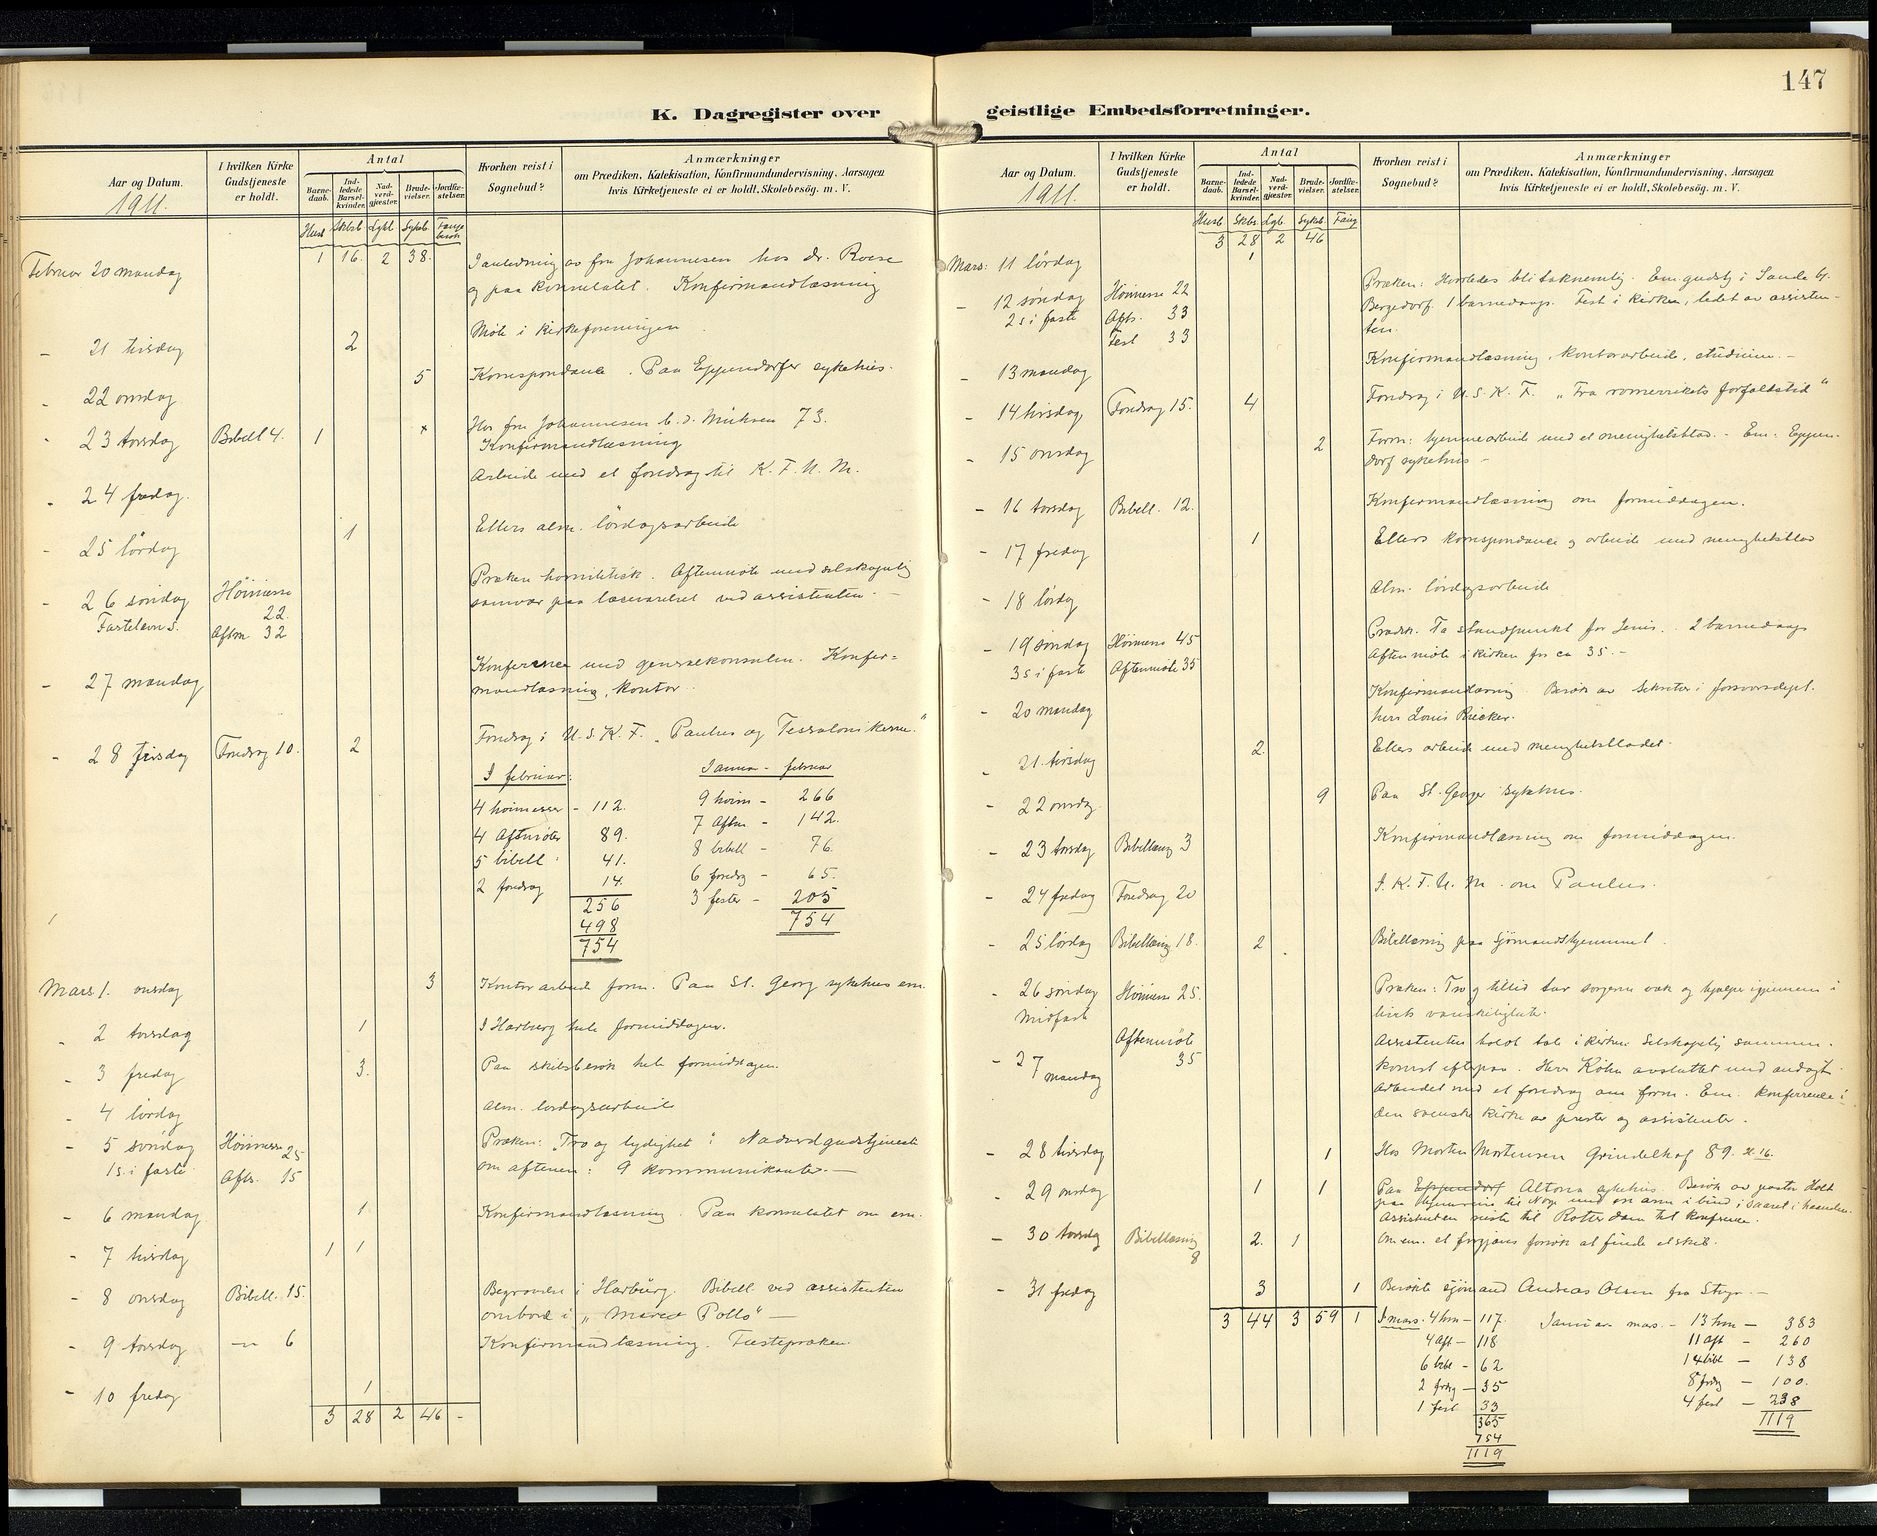 147
K. Dagregister over geistlige Embedsforretninger.
Aar og Datum. 1911.
I hvilken Kirke Gudstjeneste er holdt.
Antal
Barne-daab. Ind-ledede Barsel-kvinder. Nad-verd-gjester. Brude-vielser. Jordfæ-stelser.
Hvorhen reist i Sognebud?
Anmærkninger
om Prædiken, Katekisation, Konfirmandundervisning, Aarsagen
hvis Kirketjeneste ei er holdt, Skolebesøg. m. V.
Husb Skbsb Lgbl Sykb. Fange besök
1 16. 2 38.
Februar 20 mandag I anledning av fru Johannesen hos dr. Roese
og paa konsulatet. Konfirmandlæsning
- 21 tirsdag 2 Möte i kirkeforeningen.
- 22 onsdag 5 Korrespondance. Paa Eppendorfer sykehus.
- 23 torsdag Bibell 4. 1 x Hos fru Johannesen 73.
Konfirmandlæsning
- 24 fredag. Arbeide med et foredrag til K. F. U. M.
- 25 lördag 1 Ellers alm. lördagsarbeide
- 26 söndag Höimesse 22. Præken homiletisk. Aftenmöte med selskapelig
Fastelavn s. Aftm 32 samvær paa læseværelset ved assistenten.
- 27 mandag Konferense med generalkonsulen. Konfir=
mandlæsning, kontor.
- 28 tirsdag Foredrag 10. 2 Foredrag i U. S. K. F. „Paulus og Tessalonikerne."
I februar: Januar - februar
4 höimesser - 112. 9 höim - 266
4 Aftmöter 89. 7 Aftm - 142.
5 bibell 41. 8 bibell - 76.
2 foredrag 14. 6 foredrg - 65.
256 3 fester - 205
498 754
754
Mars 1. onsdag 3 Kontorarbeid form. Paa St. Georg sykehus em.
- 2 torsdag 1 I Harburg hele formiddagen.
- 3 fredag 3. Paa skibsbesök hele formiddagen.
- 4 lördag Alm. lördagsarbeide
- 5 söndag Höimesse 25 Præken: „Tro og lydighet". Nadverdgudstjeneste
1 s. i faste Aftr. 15 om aftenen: 9 kommunikanter. -
- 6 mandag 1 Konfirmandlæsning. Paa konsulatet om em.
- 7 tirsdag 1 1
- 8 onsdag Bibell. 15. Begravelse i Harburg. Bibell ved assistenten
ombord i „Marco Pollo" -
- 9 torsdag -"- 6 Konfirmandlæsning. Fastepræken.
- 10 fredag 1
3 28 2 46 -
Aar og Datum. 1911.
I hvilken Kirke Gudstjeneste er holdt.
Antal
Barne-daab. Ind-ledede Barsel-kvinder. Nad-verd-gjester. Brude-vielser. Jordfæ-stelser.
Hvorhen reist i Sognebud?
Anmærkninger
om Prædiken, Katekisation, Konfirmandundervisning, Aarsagen
hvis Kirketjeneste ei er holdt, Skolebesøg. m. V.
Husb Skbs. Lgb. Sykb. Fang
3 28 2 46
Mars: 11 lördag 1
- 12 söndag Höimesse 22 Præken: Hvorledes bli taknemlig. Em gudstj i Sande
2 s i faste Afts. 33 Bergedorf. 1 barnedaap. Fest i kirken, ledet av assisten-
Fest 33 ten.
- 13 mandag Konfirmandlæsning, kontorarbeide, studium. -
- 14 tirsdag, Foredrag 15. 4 Foredrag i U. S. K. F. „Fra romerrikets forfaldstid"
- 15 onsdag 2 Form: hjemmearbeide med et menighetsblad. - Em: Eppen-
dorf sykehus -
- 16 torsdag Bibell. 12. Konfirmandlæsning om formiddagen.
- 17 fredag 1 Ellers korrespondance og arbeide med menighetsblad
- 18 lördag Alm. lördagsarbeide
- 19 söndag Höimesse 45 Præk. Ta standpunkt for Jesus. 2 barnedaap
3 s i faste Aftenmöte 35 Aftenmöte i kirken for ca 35. -
- 20 mandag Konfirmandlæsning. Besök av sekretær i forsvarsdept.
herr Louis Riecker.
- 21. tirsdag 2. Ellers arbeide med menighetsbladet.
- 22 onsdag. 9 Paa St. Georger sykehus.
- 23 torsdag Bibellæsng 3 Konfirmandlæsning om formiddagen.
- 24 fredag Foredrag 20 I. K. F. U. M. om Paulus.
- 25 lördag Bibellæsng 18. 2 Bibellæsning paa Sjömandshjemmet.
- 26 söndag Höimesse 25. Præken: Tro og tillid tar sorgerne væk og hjælper igjennem i
Midfaste livets vanskeligheter.
Aftenmöte 35 Assistenten holdt tale i kirken. Selskapelig sammen-
- 27 mandag komst efterpaa. Herr Köhn avsluttet med andagt.
Arbeidet med et foredrag om form. Em. konferense i
den svenske kirke av prester og assistenter.
- 28 tirsdag 1 Hos Morten Mortensen Grindelhof 89. H. 16.
- 29 onsdag 1 1 Paa Eppendorf Altona sykehus. Besök av pastor Holt
paa hjemreise til Norge med en arm i bind,
Assistenten reiste til Rotterdam til konferense.
- 30 torsdag Bibellæsning 8 2. 1 Om em. et forgjæves forsök at finde et skib.
- 31 fredag 3 1 Besökte sjömand Andreas Olsen fra Stryn. -
3 44 3 59 1 I mars. 4 höm - 117. Januar mars. - 13 höm - 383
4 aft - 118 11 aft - 260
6 bibl - 62 14 bibl - 138
2 fordrg - 35 8 fordg - 100.
1 fest 33 4 fest - 238
365 1119
754
1119